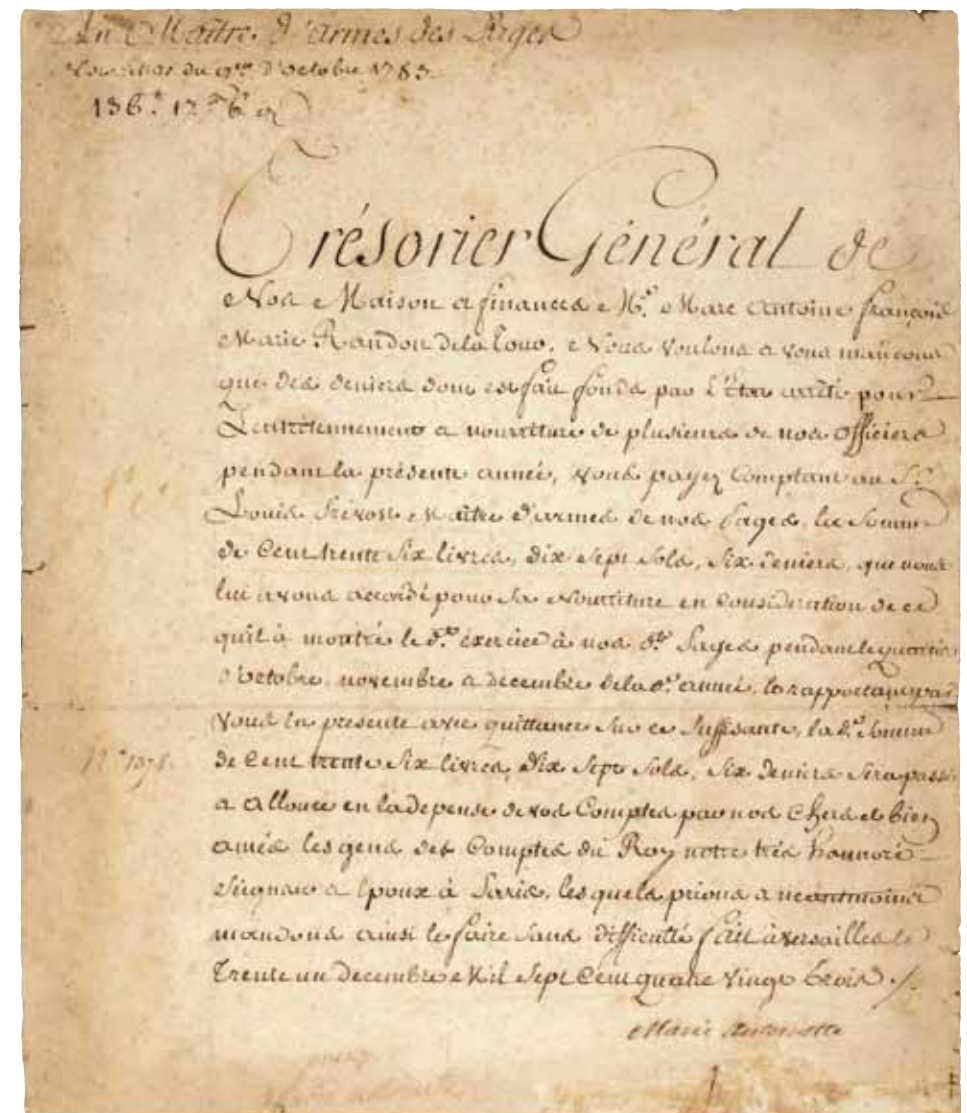 Au Maitre d'armes des Pages
du qer d'octobre 1783
136# 17s 6d
Trésorier Général de
Nos Maison et finances Me. Marc Antoine françois
Marie Randon de la Tour, Nous Voulons et vous mandons
que des deniers dont est fait fonds par L'État arrêté pour
L'entretennement et nourriture de plusieurs de nos Officiers
pendant la présente année, vous payez Comptant au Sr.
Louis Prévost Maitre d'armes de nos Pages, la Somme
de Cent trente Six livres, dix sept Sols, Six deniers, que nous
lui avons accordé pour Sa Nourriture en Considération de ce
qu'il à montré le dt. éxercice à nos dts. Pages pendant le quartier
d'octobre, novembre et decembre de la de. année, et rapportant par
Vous la presente avec quittance Sur ce Suffisante, la de. Somme
de Cent trente Six livres, Dix Sept Sols, Six Deniers Sera passée
et allouée en la dépense de vos Comptes par nos Chers et bien
amés les gens des Comptes du Roy notre très honnoré
Seigneur et Epoux à Paris, lesquels prions et neantmoins
mandons ainsi le faire Sans difficulté fait à versailles le
Trente un Decembre Mil Sept Cent quatre Vingt trois ./.
Marie Antoinette